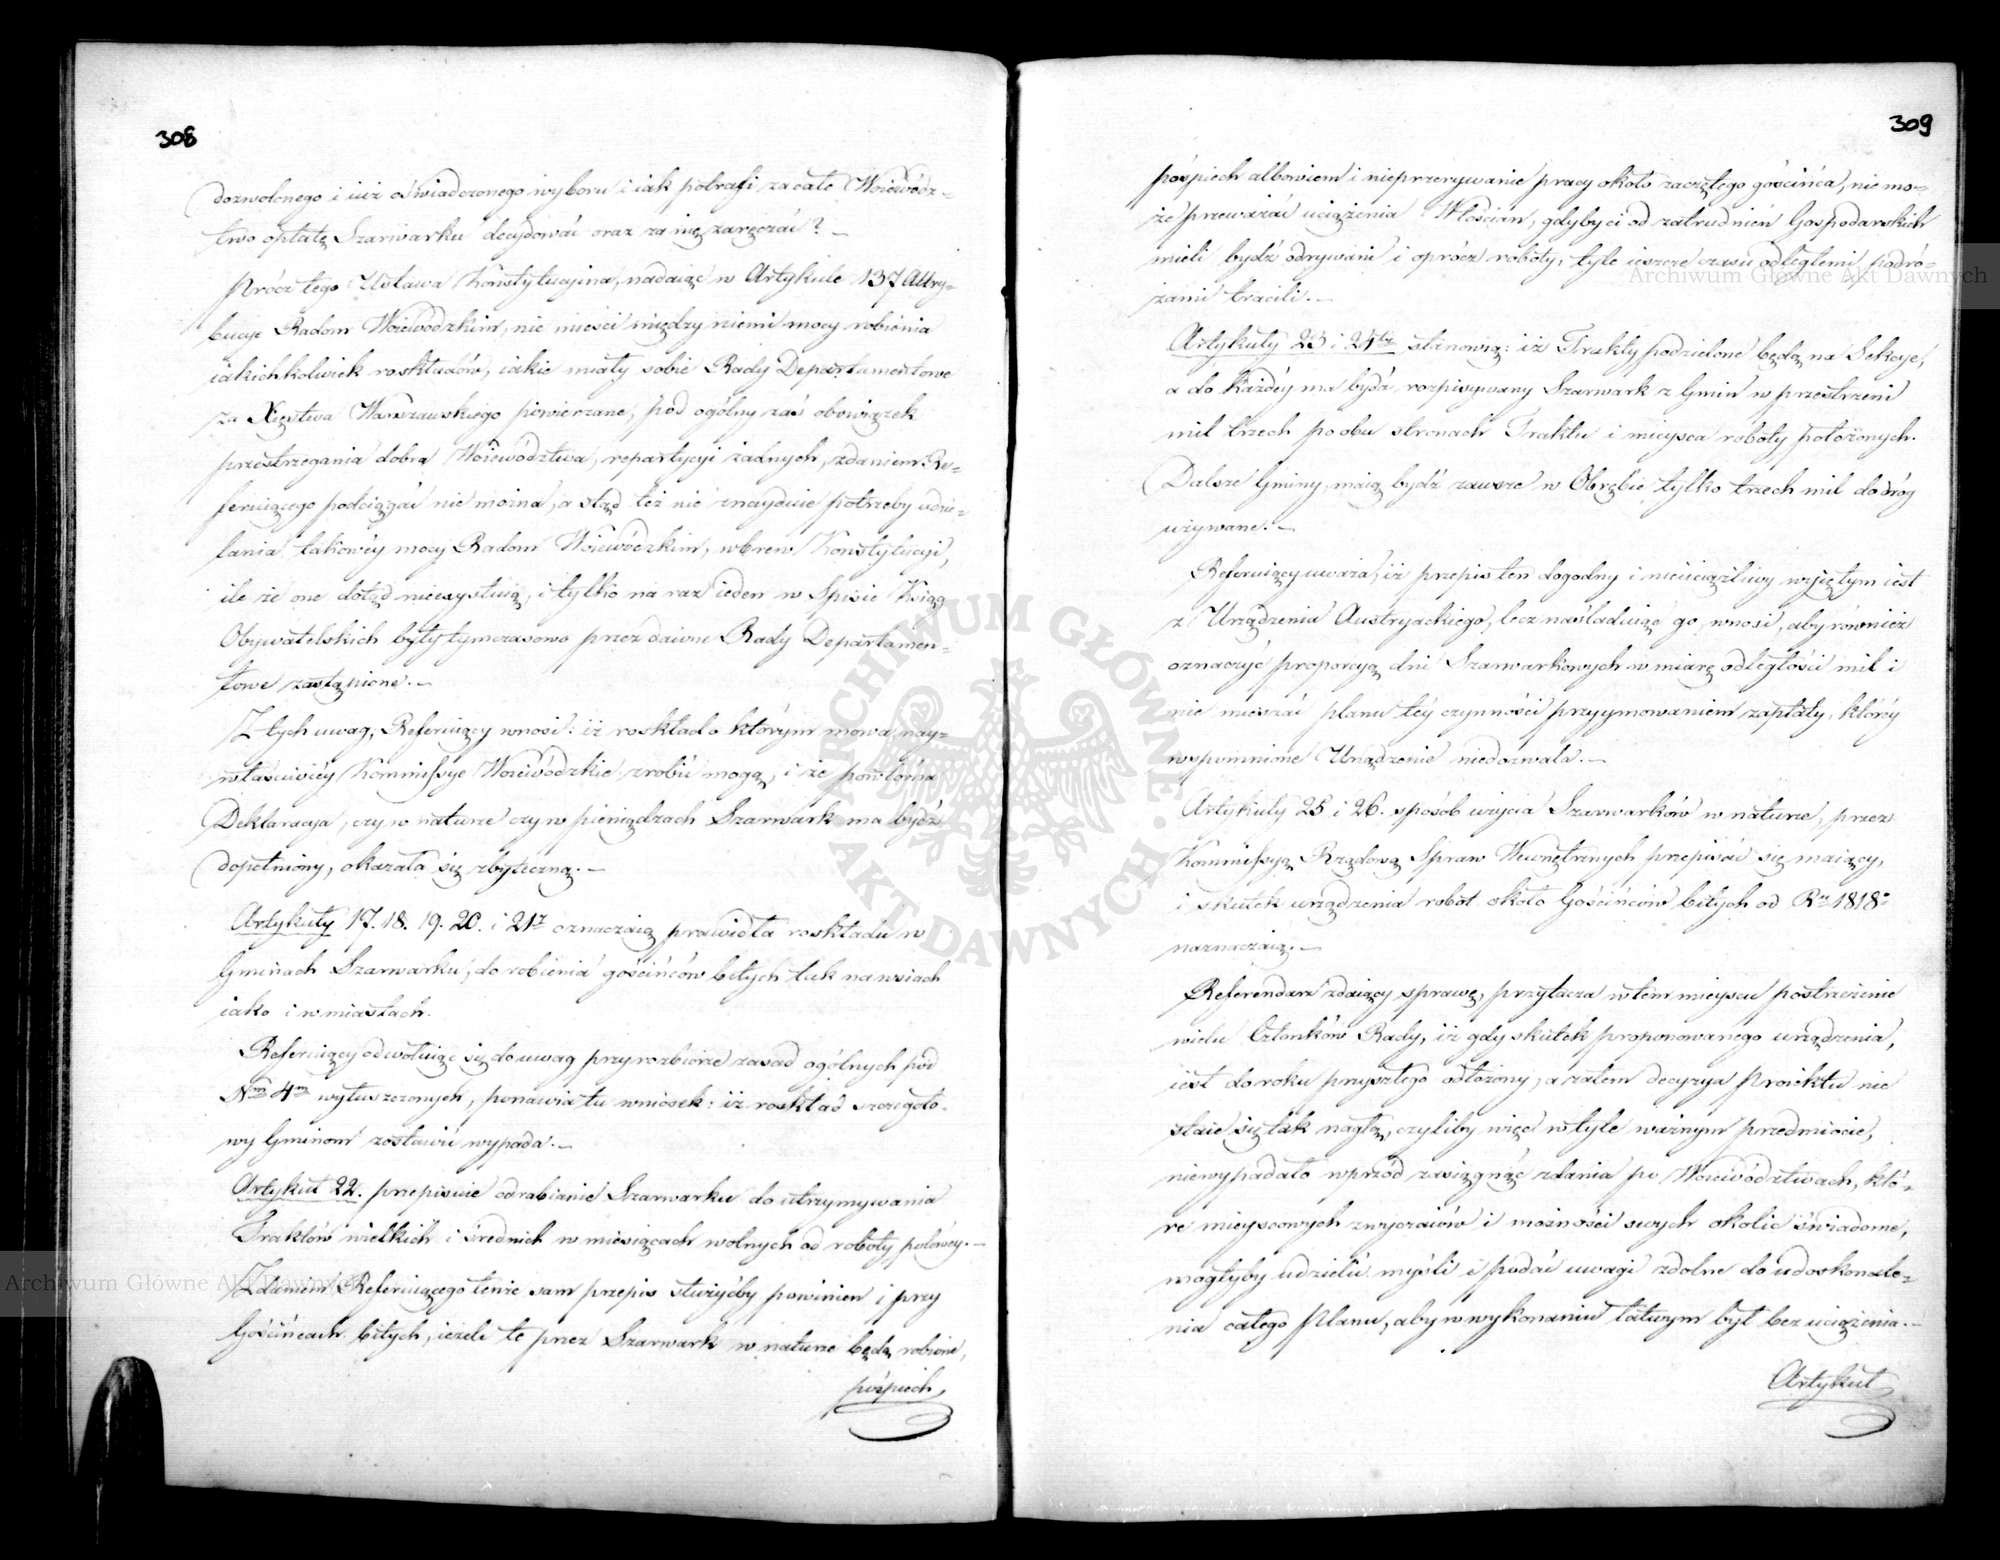 308
dozwolonego i iuż oświadczonego wyboru i iak potrafi za całe Woiewódz-
two opłatę Szarwarku decydować oraz za nię zaręczać? —
Prócz tego Ustawa Konstytucyina, nadaiąc w Artykule 137 Attry-
bucye Radom Woiewódzkim, nie mieści między niemi mocy robienia
iakichkolwiek roskładów, iakie miały sobie Rady Departamentowe
za Xięstwa Warszawskiego powierzane, pod ogólny zaś obowiązek
przestrzegania dobra Woiewództwa, repartycyi żadnych, zdaniem Re-
feruiącego podciągać nie można, a stąd też nie znayduie potrzeby udzie-
lania takowéy mocy Radom Woiewódzkim, wbrew Konstytucyi,
ile że one dotąd nieexystuią, i tylko na raz ieden w Spisie Ksiąg
Obywatelskich były tymczasowo przez dawne Rady Departamen-
towe zastąpione. —
Z tych uwag, Referuiący wnosi: iż roskład o którym mowa nay-
właściwiéy Kommissye Woiewódzkie zrobić mogą, i że powtórna
Deklaracya, czy w naturze czy w pieniądzach Szarwark ma bydź
dopełniony, okazała się zbyteczną. —
Artykuły 17. 18. 19. 20. i 21z oznaczaią prawidła roskładu w
Gminach Szarwarku, do robienia gościńców bitych tak na wsiach
iako i w miastach.
Referuiący odwołuiąc się do uwag przy rozbiorze zasad ogólnych pod
Nm 4m wyłuszczonych, ponawia tu wniosek: iż roskład szczegóło-
wy Gminom zostawić wypada. —
Artykuł 22. przepisuie odrabianie Szarwarku do utrzymywania
Traktów wielkich i średnich w miesiącach wolnych od roboty polowéy. —
Zdaniem Referuiącego tenże sam przepis służyćby powinien i przy
Gościńcach bitych, ieżeli te przez Szarwark w naturze będą robione,
pośpiech
309
pośpiech albowiem i nieprzerywanie pracy około zaczętego gościńca, nie mo-
że przeważać uciążenia Włościan, gdyby ci od zatrudnień Gospodarskich
mieli bydź odrywani i oprócz roboty, tyle ieszcze czasu odległemi podró-
żami tracili. —
Artykuły 23 i 24ty stanowią: iż Trakty podzielone będą na Sekcye,
a do każdéy ma bydź rozpisywany Szarwark z Gmin w przestrzeni
mil trzech po obu stronach Traktu i mieysca roboty położonych.
Dalsze Gminy, maią bydź zawsze w Obrębie tylko trzech mil do dróg
używane. —
Referuiący uważa, iż przepis ten dogodny i nieuciążliwy wziętym iest
z Urządzenia Austryackiego, lecz naśladuiąc go, wnosi, aby również
oznaczyć proporcyą dni Szarwarkowych w miarę odległości mil i
nie mieszać planu téy czynności przyymowaniem zapłaty, któréy
wspomnione Urządzenie niedozwala. —
Artykuły 25 i 26. sposób użycia Szarwarków w naturze, przez
Kommissyą Rządową Spraw Wewnętrznych przepisać się maiący,
i skutek urządzenia robót około Gościńców bitych od Ru 1818o
naznaczaią. —
Referendarz zdaiący sprawę, przytacza w tém mieyscu postrzeżenie
wielu Członków Rady, iż gdy skutek proponowanego urządzenia,
iest do roku przyszłego odłożony, a zatem decyzya Proiektu nie
staie się tak nagłą, czyliby więc w tyle ważnym przedmiocie,
niewypadało wprzód zasięgnąć zdania po Woiewództwach, któ-
re mieyscowych zwyczaiów i możności swych okolic świadome,
mogłyby udzielić myśli i podać uwagi zdolne do udoskonale-
nia całego Planu, aby w wykonaniu łatwym był bez uciążenia. —
Artykuł
Archiwum Główne Akt Dawnych
Archiwum Główne Akt Dawnych
ARCHIWUM GŁÓWNE AKT DAWNYCH